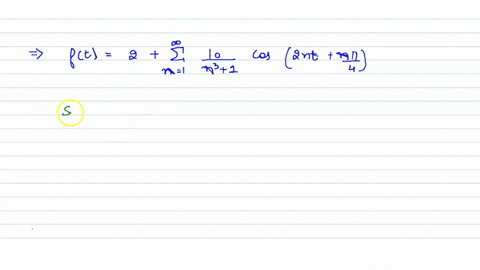 ⇒ f(t) = 2 + ∞∑n=1 10/(n³+1) cos (2nt + nπ/4)
S